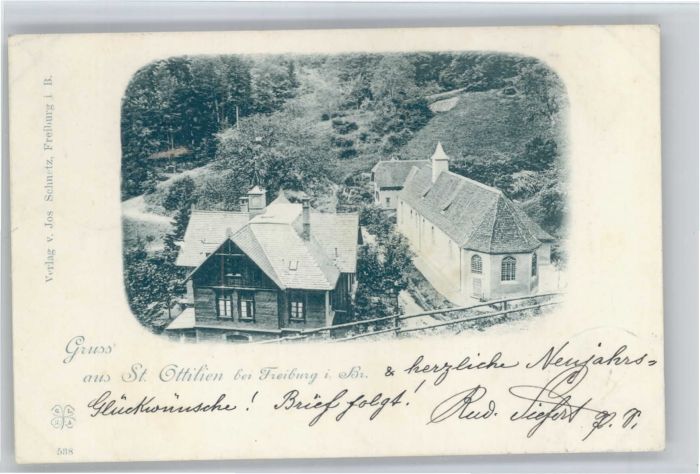 Verlag v. Jos Schnetz, Freiburg i B.
Gruss
aus St. Ottilien bei Freiburg i. Br. & herzliche Neujahrs=
Glückwünsche! Brief folgt! Rud. Siefert
588